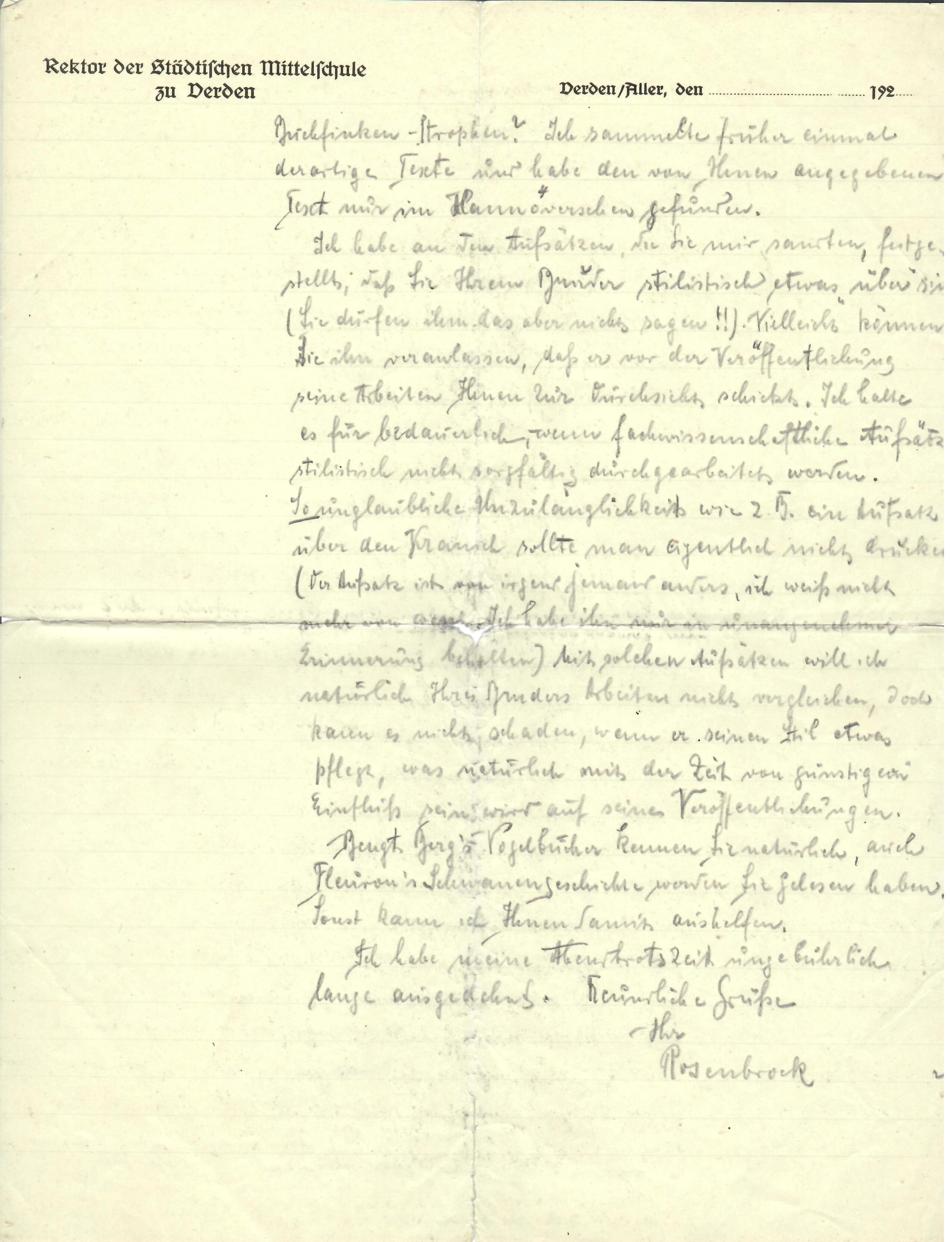 Rektor der Städtischen Mittelschule
zu Verden
Verden/Aller, den 192
Buchfinken-Strophen? Ich sammelte früher einmal
derartige Texte und habe den von Ihnen angegebenen
Text nur im Hannoverschen gefunden.
Ich habe an den Aufsätzen, die Sie mir sandten, festge-
stellt, daß Sie Ihrem Bruder stilistisch etwas über sin
(Sie dürfen ihm das aber nicht sagen!!). Vielleicht können
Sie ihn veranlassen, daß er vor der Veröffentlichung
seine Arbeiten Ihnen zur Durchsicht schickt. Ich halte
es für bedauerlich, wenn fachwissenschaftliche Aufsätz
stilistisch nicht sorgfältig durchgearbeitet werden.
So unglaubliche Unzulänglichkeit wie z. B. ein Aufsatz
über den Kranich sollte man eigentlich nicht drucken
(Der Aufsatz ist von irgend jemand anders, ich weiß nicht
mehr von wem. Ich habe ihn nur in unangenehmer
Erinnerung behalten) Mit solchen Aufsätzen will ich
natürlich Ihres Bruders Arbeiten nicht vergleichen, doch
kann es nicht schaden, wenn er seinen Stil etwas
pflegt, was natürlich mit der Zeit von günstigem
Einfluß sein wird auf seine Veröffentlichungen.
Bengt Berg's Vogelbücher kennen Sie natürlich, auch
Fleuron's Schwanengeschichte werden Sie gelesen haben.
Sonst kann ich Ihnen damit aushelfen.
Ich habe meine Abendbrotszeit ungebührlich
lange ausgedehnt. Freundliche Grüße
Ihr
Rosenbrock